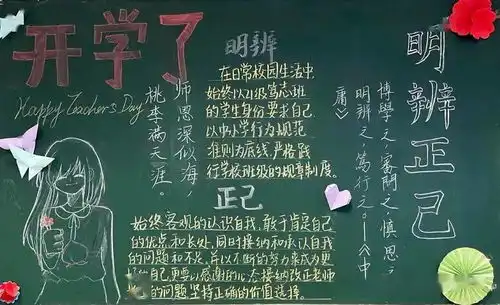 开学了
Happy Teacher's Day
师恩深似海，
桃李满天涯。
明辨
在日常校园生活中
始终以21级笃志班
的学生身份要求自己
以中小学行为规范
准则为底线，严格践
行学校班级的规章制度。
正己
始终客观的认识自我，敢于肯定自己
的优点和长处，同时接纳和承认自我
的问题和不足，并以不断的努力来成为更
自己，更要以感谢的心态接纳改正老师
的问题，坚持正确的价值选择。
明辨正己
博學之，審問之，慎思之，
明辨之，篤行之。——《中
庸》